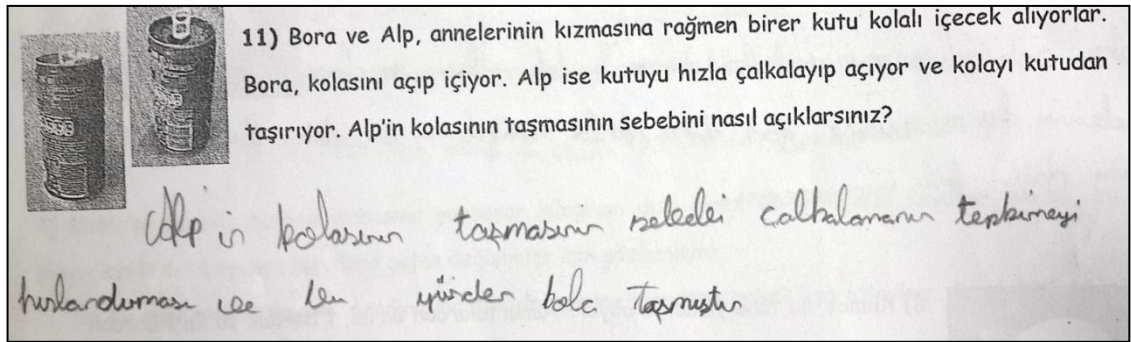 11) Bora ve Alp, annelerinin kızmasına rağmen birer kutu kolalı içecek alıyorlar.
Bora, kolasını açıp içiyor. Alp ise kutuyu hızla çalkalayıp açıyor ve kolayı kutudan
taşırıyor. Alp'in kolasının taşmasının sebebini nasıl açıklarsınız?
Alp'in kolasının taşmasının sebebi çalkalamanın tepkimeyi
hızlandırması ve bu yüzden kola taşmıştır